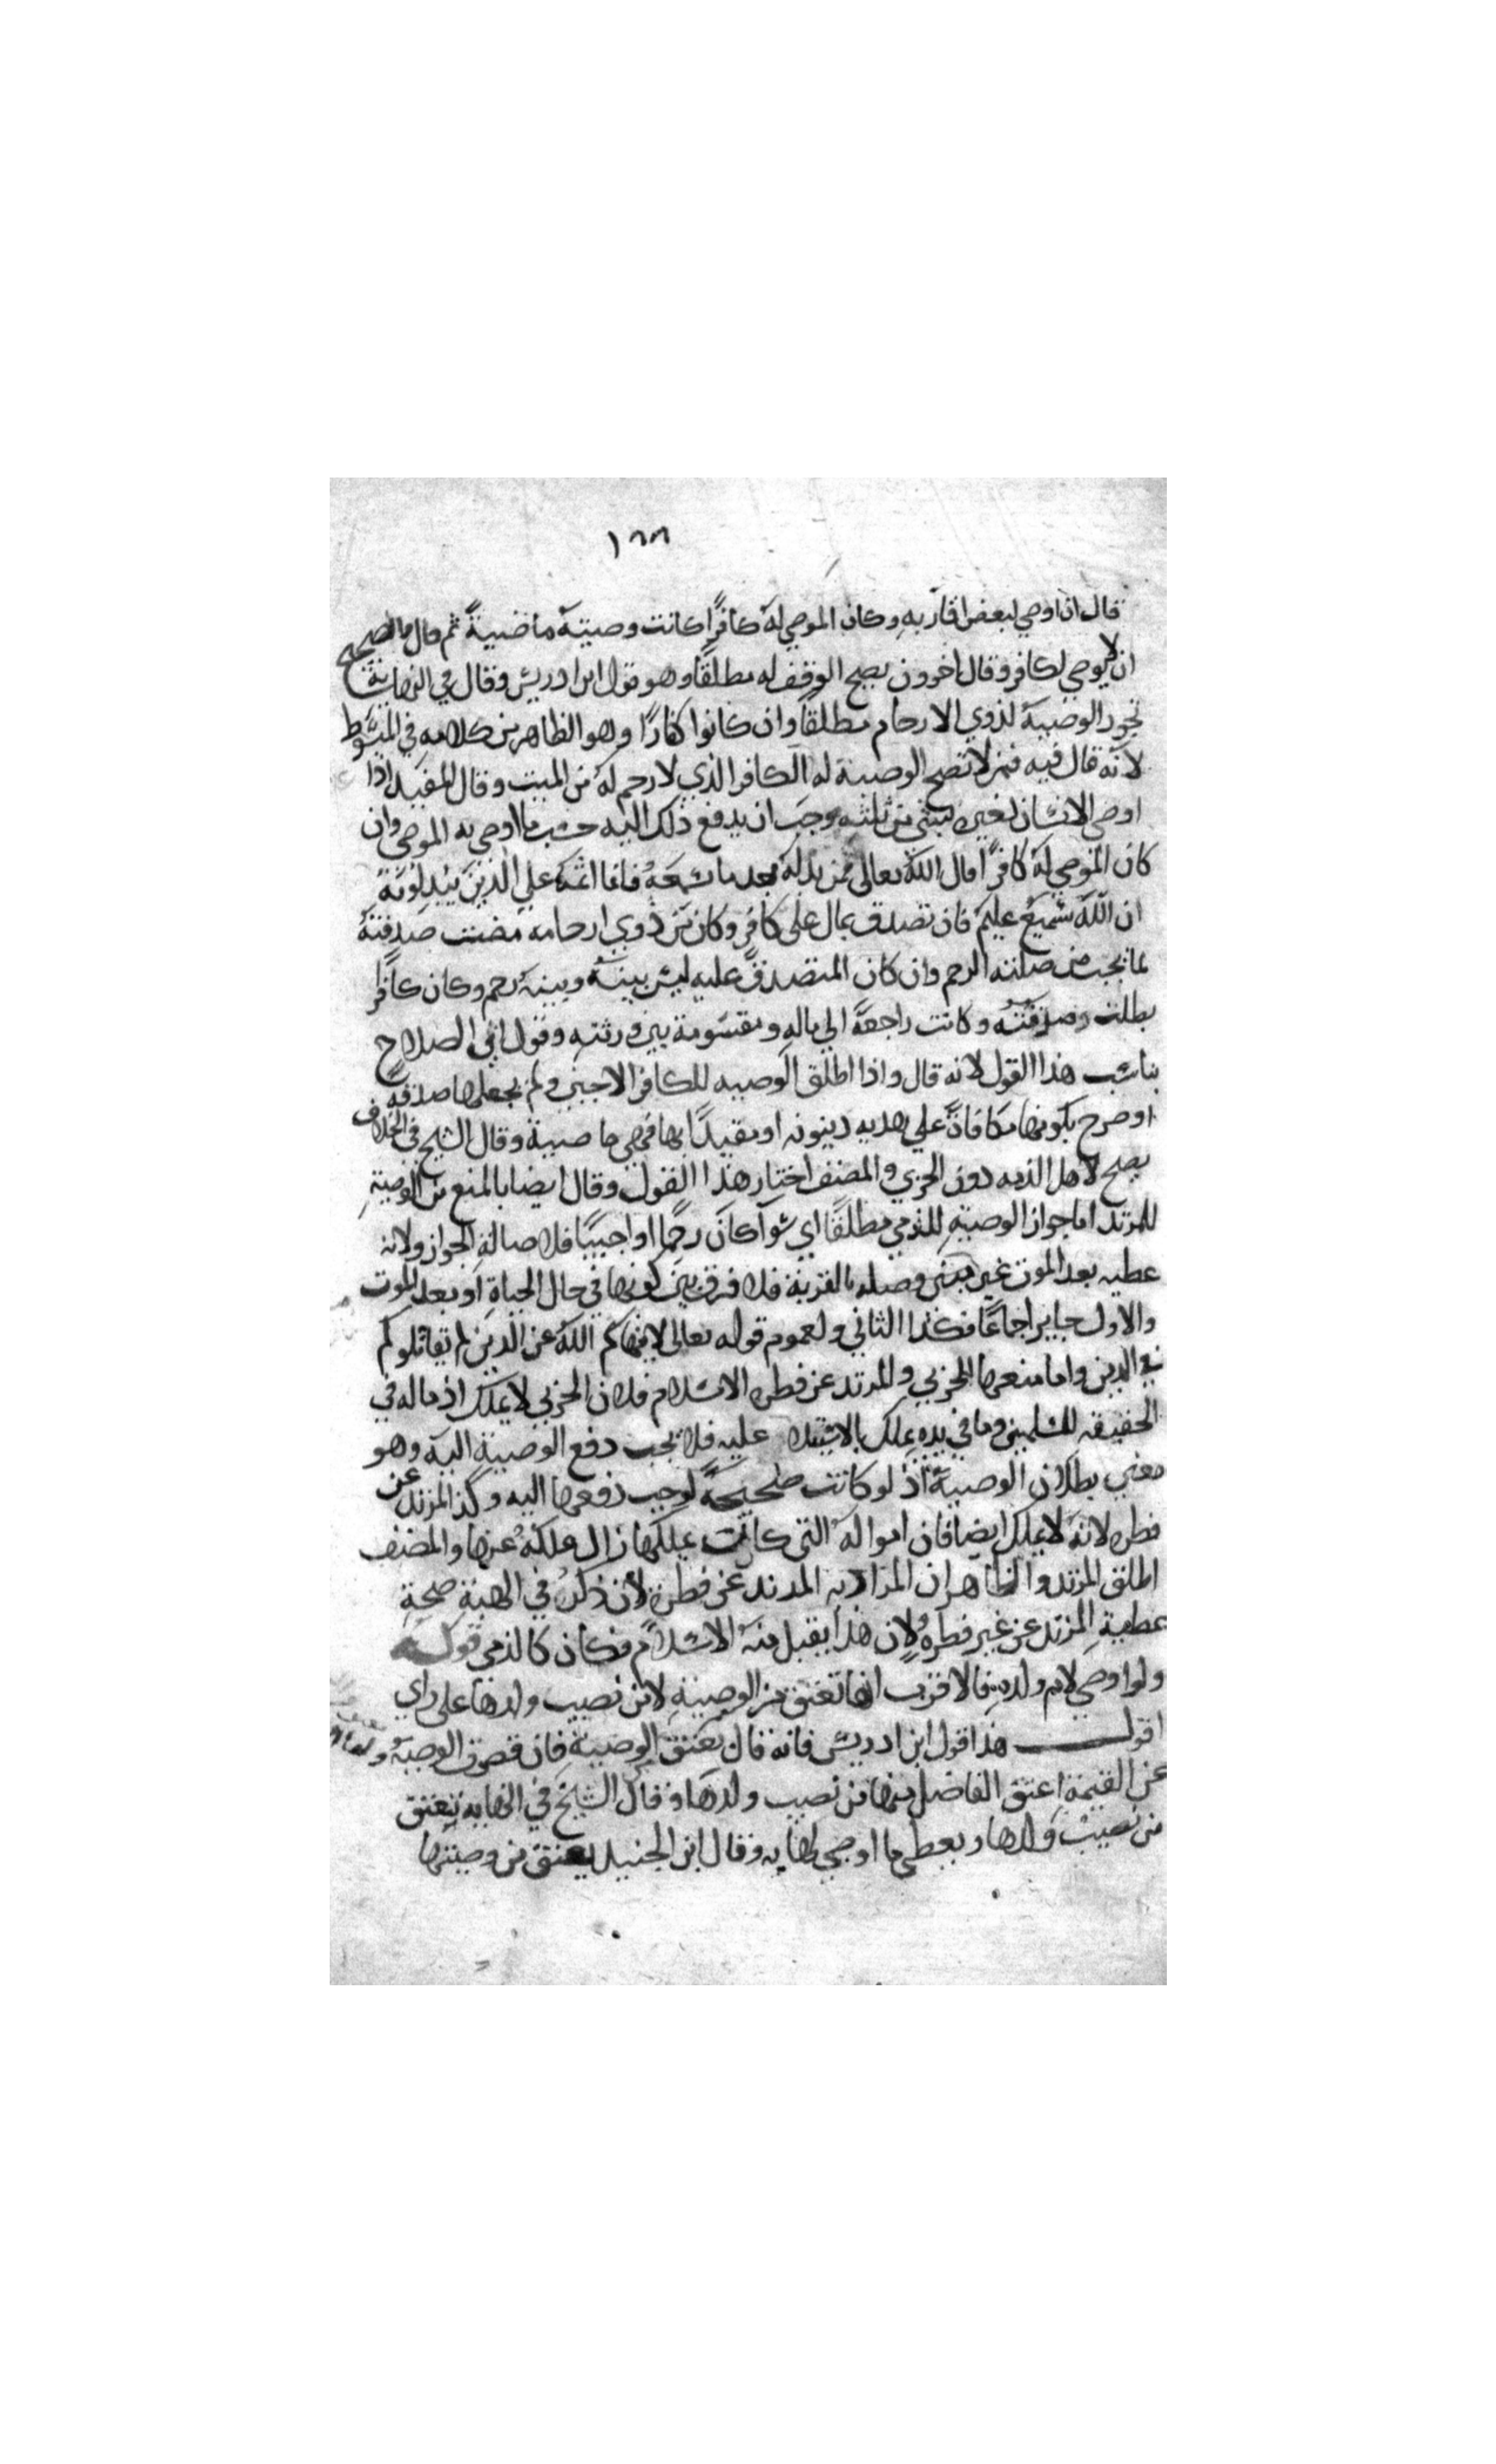 ١٨٨
قال ان اوصي لبعض اقاربه وكان الموصي له كافرًا كانت وصيته ماضيةً ثم قال والصحيح
ان لا يوصي لكافر وقال اخرون يصح الوقف له مطلقًا وهو قول ابن ادريس وقال في النهاية
تجوز الوصية لذوي الارحام مطلقًا وان كانوا كفارًا وهو الظاهر من كلامه في المبسوط
لانه قال فيه فمن لا تصح الوصية له الكافر الذي لا رحم له من الميت وقال المفيد اذا
اوصي الانسان لغيره بشي من ثلثه وجب ان يدفع ذلك اليه حسب ما اوصي به الموصي وان
كان الموصي له كافرًا قال الله تعالى فمن بدله بعد ما سمعه فانما اثمه علي الذين يبدلونه
ان الله سميع عليم فان تصدق بمال على كافر وكان من ذوي ارحامه مضت صدقته
لما يجب من صلته الرحم وان كان المتصدق عليه ليس بينه وبينه رحم وكان كافرا
بطلت صدقته وكانت راجعة الي ماله ومقسومة بين ورثته وقول ابي الصلاح
يناسب هذا القول لانه قال واذا اطلق الوصيه للكافر الاجنبي ولم يجعلها صدقه
او صرح بكونها مكافاة علي هديه دينونه او مقيدًا بها فهي ماضية وقال الشيخ في الخلاف
يصح لاهل الذمه دون الحربي والمصنف اختار هذا القول وقال ايضا بالمنع من الوصية
للمرتد اما جواز الوصية للذمي مطلقًا اي سوآ كان رحمًا او اجنبيًا فلاصالة الجواز ولانه
عطيه بعد الموت غير بالقربة فلا فرق بين كونها في حال الحياة او بعد الموت
والاول جايز اجماعًا فكذا الثاني ولعموم قوله تعالى لا ينهاكم الله عن الذين لم يقاتلوكم
في الدين واما منعها للحربي والمرتد عن فطره الاسلام فلان الحربي لا يملك اذ ماله في
الحقيقه للمسلمين وما في يده يملك بالاستيلا عليه فلا يجب دفع الوصية اليه وهو
معني بطلان الوصية اذ لو كانت صحيحةً لوجب دفعها اليه وكذا المرتد عن
فطره لانه لا يملك ايضا فان امواله التي كانت يملكها زال ملكه عنها والمصنف
اطلق المرتد والظاهر ان المراد به المرتد عن فطرة لان ذكر في الهبة صحة
عطية المرتد عن غير فطره ولان هذا يقبل منه الاسلام فكان كالذمي قوله
ولو اوصي لام ولده فالاقرب انها تعتق من الوصية لا من نصيب ولدها على راي
اقول هذا قول ابن ادريس فانه قال يعتق الوصية فان قصرت الوصية
عن القيمة اعتق الفاضل منها من نصيب ولدها وقال الشيخ في النهايه تعتق
من نصيب ولدها ويعطي ما اوصي لها به وقال ابن الجنيد يعتق من وصيتها